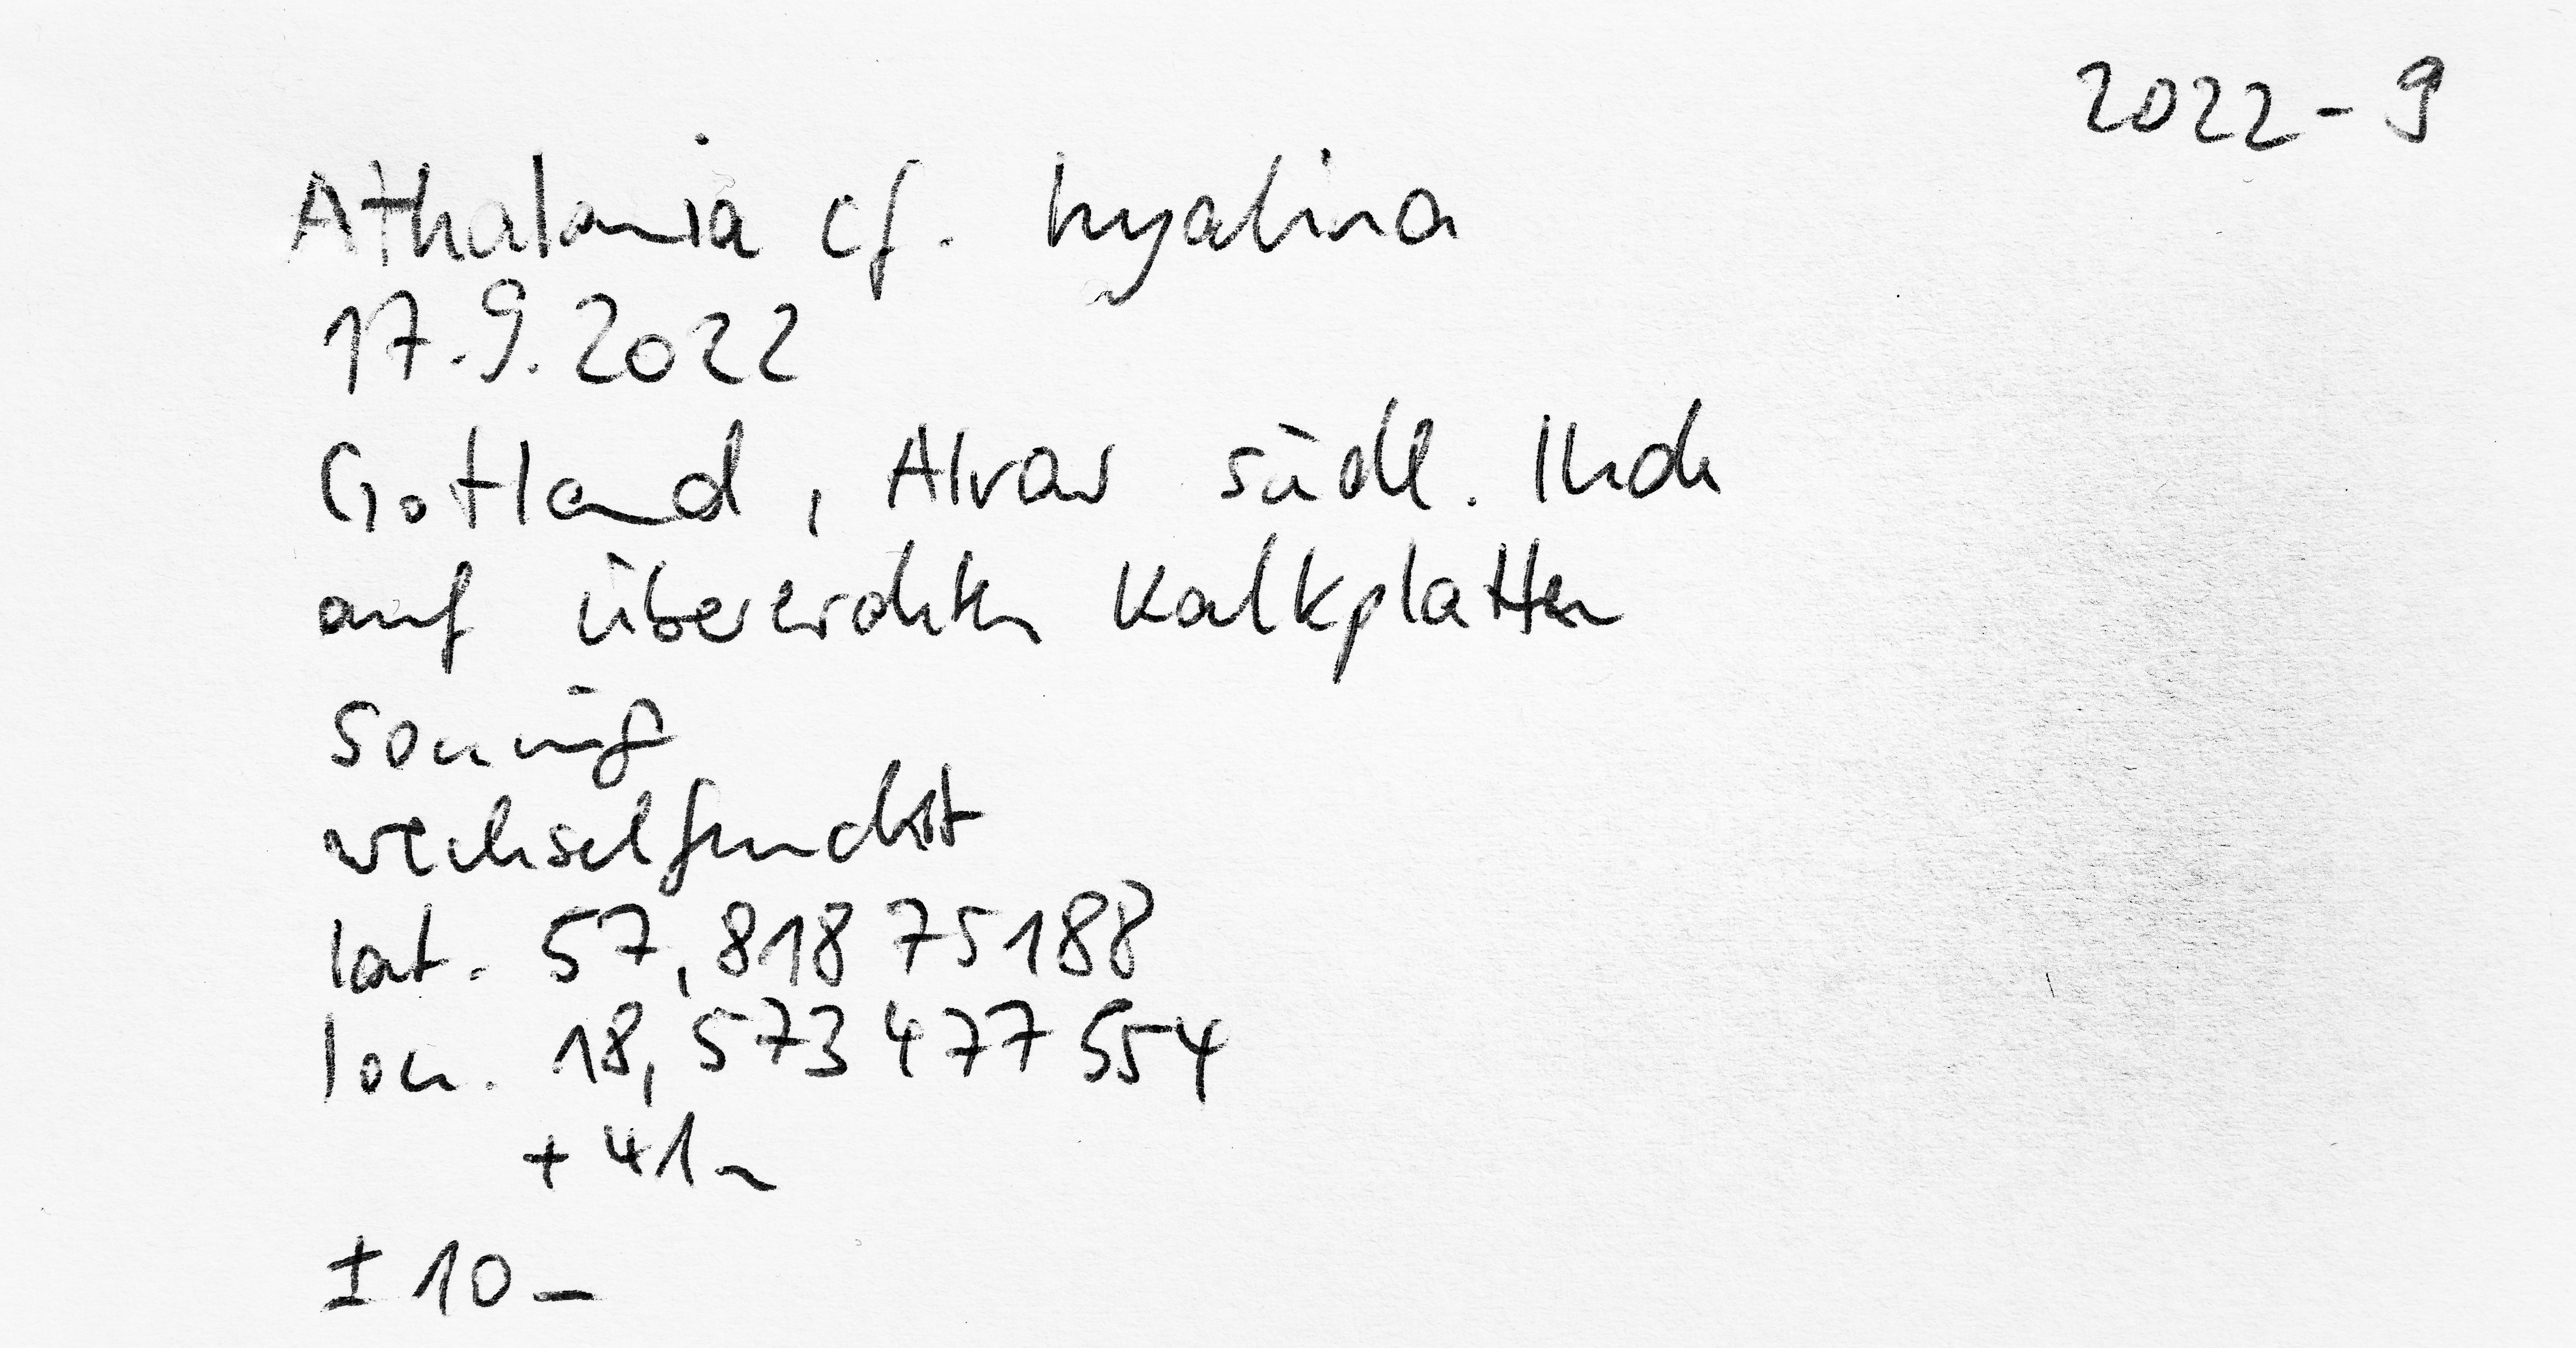 2022-9
Athalamia cf. hyalina
17.9.2022
Gotland, Alvar südl.
auf übererdeten Kalkplatten
sonnig
wechselfeucht
lat. 57,81875188
lon. 18,573477554
+41m
±10m